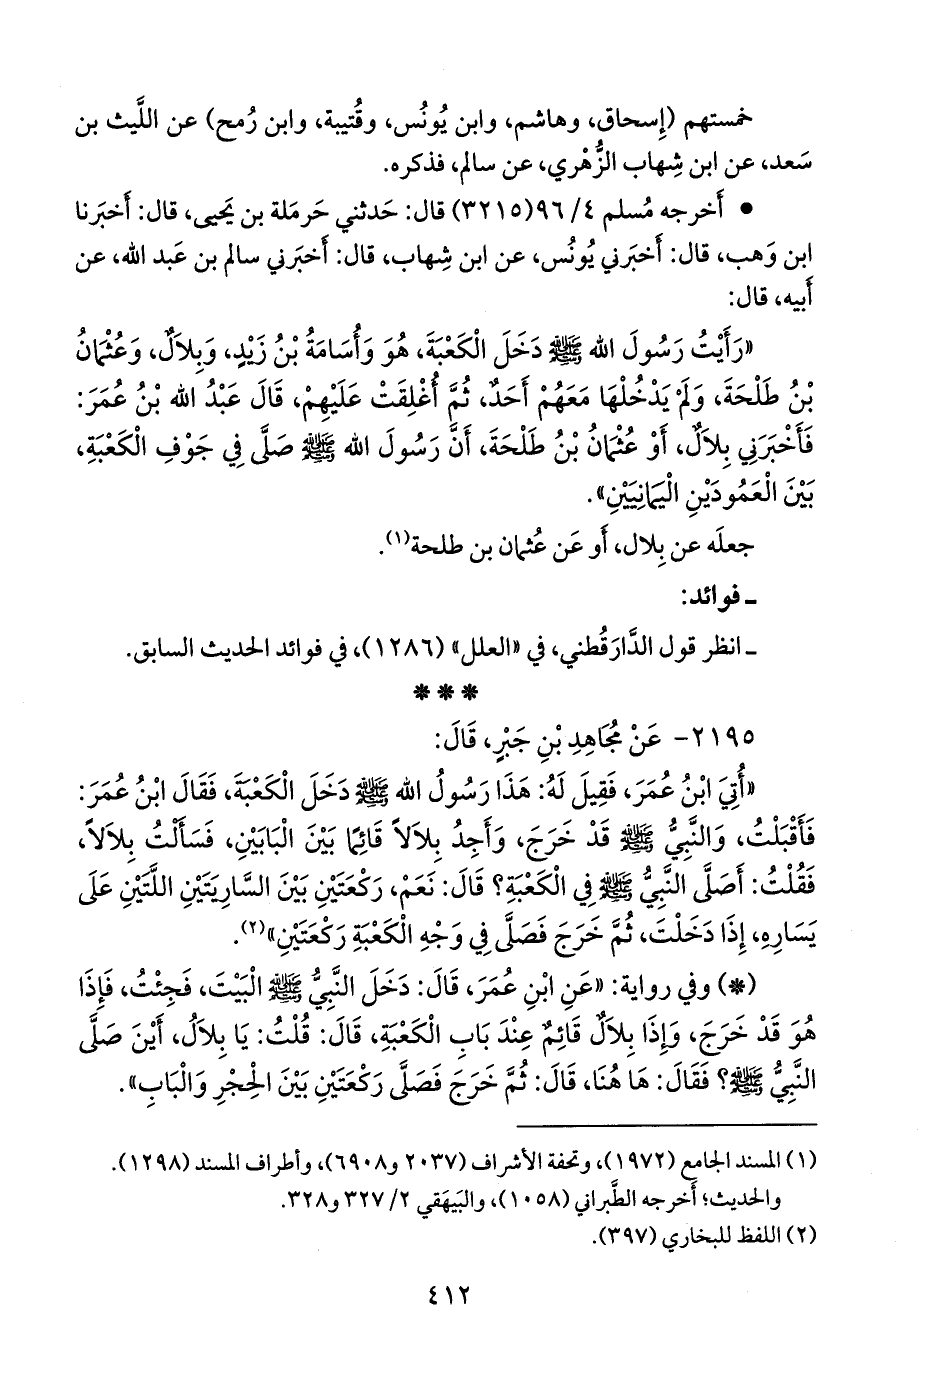 خمستهم (إِسحاق، وهاشم، وابن يُونُس، وقُتيبة، وابن رُمح) عن الليث بن
سَعد، عن ابن شِهاب الزُّهْري، عن سالم، فذكره.
• أَخرجه مُسلم ٤/ ٩٦(٣٢١٥) قال: حَدثني حَرمَلة بن يَحيى، قال: أَخبَرنا
ابن وَهب، قال: أَخبَرني يُونُس، عن ابن شِهاب، قال: أَخبَرني سالم بن عَبد الله، عن
أَبيه، قال:
«رَأَيْتُ رَسُولَ الله ﷺ دَخَلَ الْكَعْبَةَ، هُوَ وَأُسَامَةُ بْنُ زَيْدٍ، وَبِلاَلٌ، وَعُثْمَانُ
بْنُ طَلْحَةَ، وَلَمْ يَدْخُلْهَا مَعَهُمْ أَحَدٌ، ثُمَّ أُغْلِقَتْ عَلَيْهِمْ، قَالَ عَبْدُ الله بْنُ عُمَرَ:
فَأَخْبَرَنِي بِلاَلٌ، أَوْ عُثْمَانُ بْنُ طَلْحَةَ، أَنَّ رَسُولَ الله ﷺ صَلَّى فِي جَوْفِ الْكَعْبَةِ،
بَيْنَ الْعَمُودَيْنِ الْيَمَانِيَيْنِ».
جعلَه عن بِلال، أَو عَن عُثمان بن طلحة(١).
ـ فوائد:
ـ انظر قول الدَّارَقُطني، في «العلل» (١٢٨٦)، في فوائد الحديث السابق.
* * *
٢١٩٥- عَنْ مُجَاهِدِ بْنِ جَبْرٍ، قَالَ:
«أُتِيَ ابْنُ عُمَرَ، فَقِيلَ لَهُ: هَذَا رَسُولُ الله ﷺ دَخَلَ الْكَعْبَةَ، فَقَالَ ابْنُ عُمَرَ:
فَأَقْبَلْتُ، وَالنَّبِيُّ ﷺ قَدْ خَرَجَ، وَأَجِدُ بِلاَلاً قَائِمًا بَيْنَ الْبَابَيْنِ، فَسَأَلْتُ بِلاَلاً،
فَقُلْتُ: أَصَلَّى النَّبِيُّ ﷺ فِي الْكَعْبَةِ؟ قَالَ: نَعَمْ، رَكْعَتَيْنِ بَيْنَ السَّارِيَتَيْنِ اللَّتَيْنِ عَلَى
يَسَارِهِ، إِذَا دَخَلْتَ، ثُمَّ خَرَجَ فَصَلَّى فِي وَجْهِ الْكَعْبَةِ رَكْعَتَيْنِ»(٢).
(*) وفي رواية: «عَنِ ابْنِ عُمَرَ، قَالَ: دَخَلَ النَّبِيُّ ﷺ الْبَيْتَ، فَجِئْتُ، فَإِذَا
هُوَ قَدْ خَرَجَ، وَإِذَا بِلاَلٌ قَائِمٌ عِنْدَ بَابِ الْكَعْبَةِ، قَالَ: قُلْتُ: يَا بِلاَلُ، أَيْنَ صَلَّى
النَّبِيُّ ﷺ؟ فَقَالَ: هَا هُنَا، قَالَ: ثُمَّ خَرَجَ فَصَلَّى رَكْعَتَيْنِ بَيْنَ الْحِجْرِ وَالْبَابِ».
(١) المسند الجامع (١٩٧٢)، وتحفة الأشراف (٢٠٣٧ و٦٩٠٨)، وأطراف المسند (١٢٩٨).
والحديث؛ أَخرجه الطَّبراني (١٠٥٨)، والبَيهَقي ٢/ ٣٢٧ و٣٢٨.
(٢) اللفظ للبخاري (٣٩٧).
٤١٢